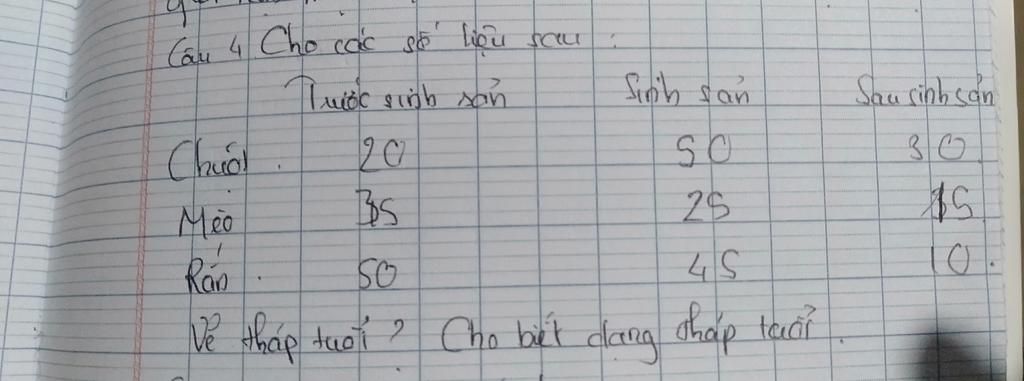 Câu 4 Cho các số liệu sau :
Trước sinh sản Sinh sản Sau sinh sản
Chuột . 20 50 30
Mèo 35 25 15
Rắn . 50 45 10.
Vẽ tháp tuổi ? Cho biết dạng tháp tuổi .